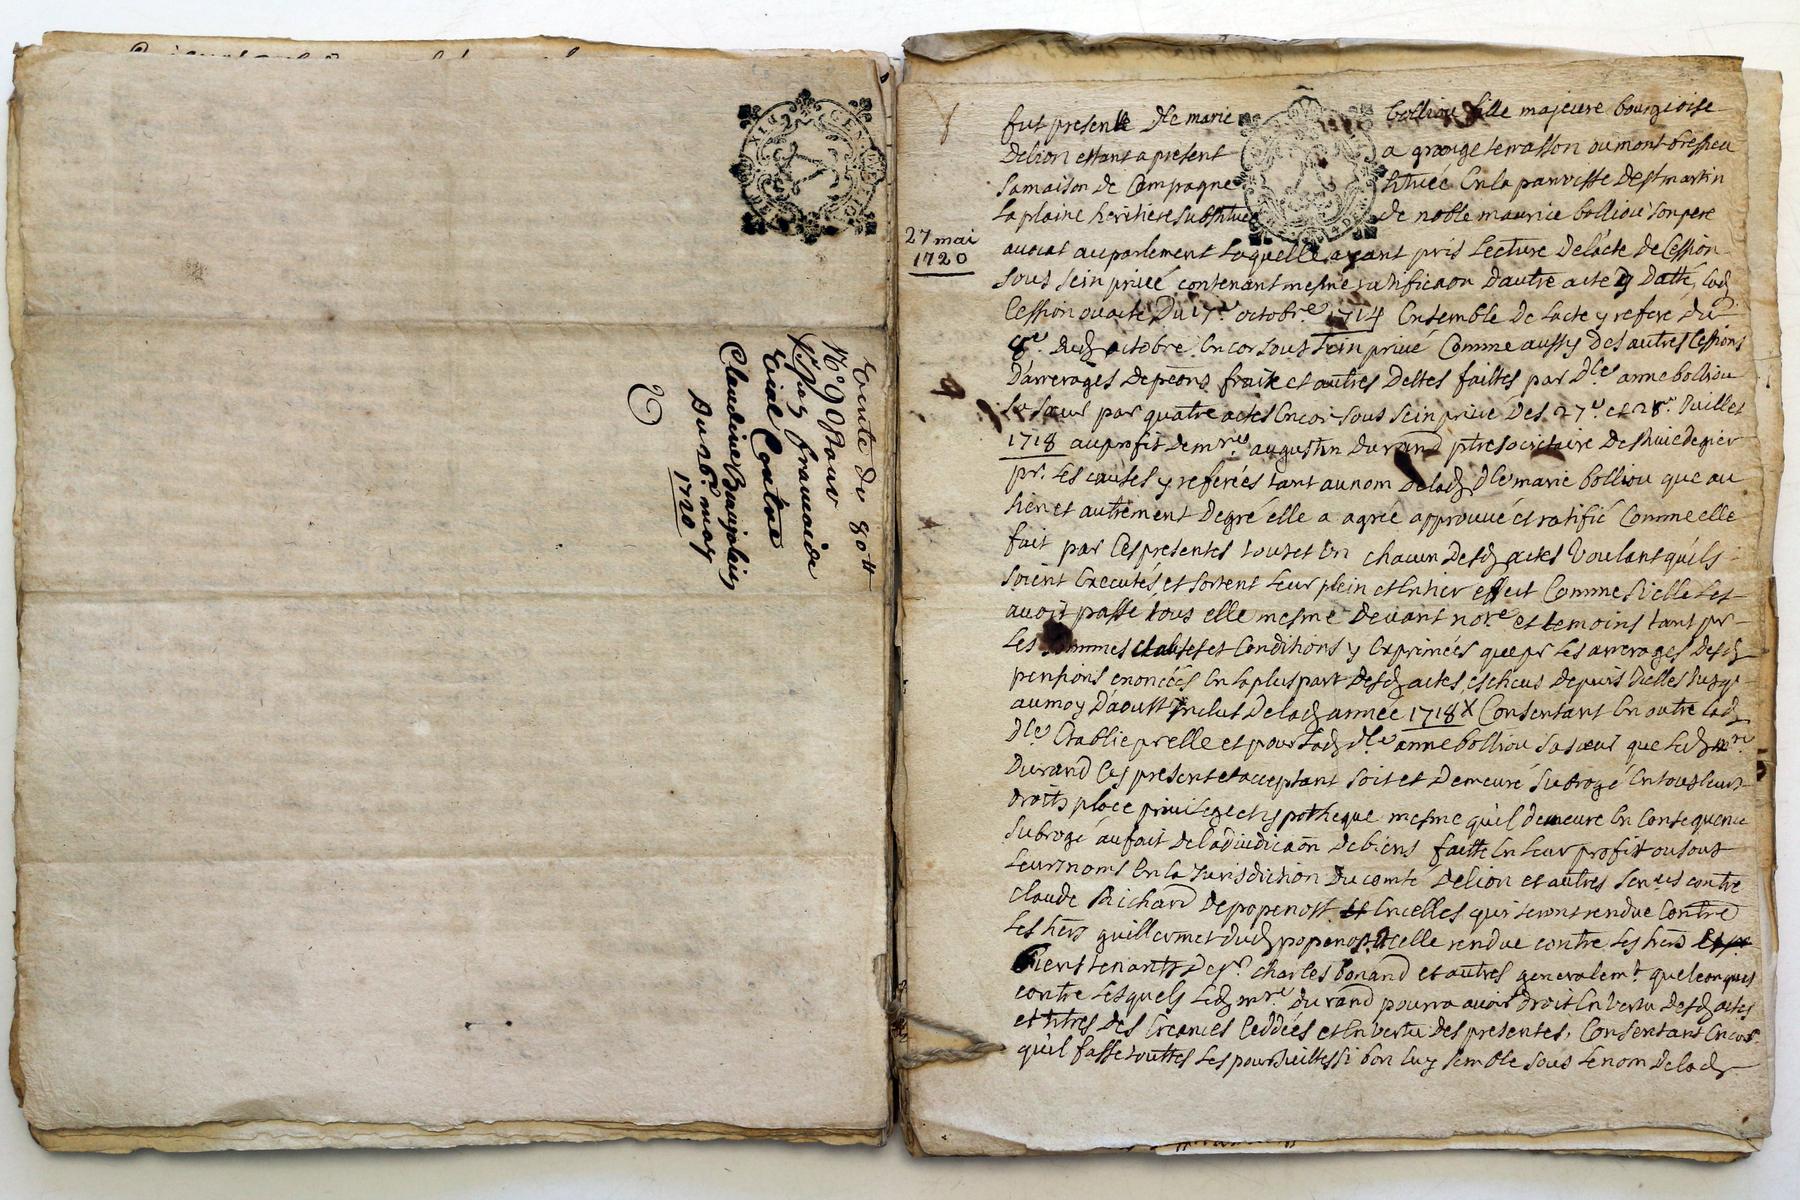 Vente de 80tt
N° 90 Pour
françoise
Vial Contre
Claudine Baujolin
Du 6e may
1720
27 mai
1720
fut presente Dlle marie bolliou fille majeure bourgioise
Delion estant a present a grange terrasson ou mont bressieu
samaison de Campagne Situéé En la parroisse De st martin
la plaine heritiere substituee de noble maurice bolliou son pere
avocat au parlement laquelle ayant pris Lecture De lacte de Cession
sous sein privé contenant mesme ratificaon Dautre acte y Datté, lad
Cession ou acte Du 17e octobre 1714 Ensemble De lacte y referé du
8e Dud octobre Encor sous sein privé Comme aussy Des autres Cessions
Darrerages De peons fraix et autres Debtes faittes par Dlle anne bolliou
sa sœur par quatre actes Encor sous sein privé Des 27e et 28e Juillet
1718 au profit de mre augustin Durand ptre societaire De Rivedegier
pr. les causes y referéés tant au nom De lad Dlle marie bolliou que au
sien et autrement De gré elle a agree approuvé et ratifié Comme elle
fait par Ces presentes tous et Un chacun Desd actes Voulant quils
soient Executés et sortent leur plein et Entier effect Comme si elle les
avoit passé tous elle mesme Devant nore et temoins tant pr
les sommes clauses et Conditions y Exprimées que pr les arrerages Desd
pensions enoncéés En la pluspart Desd actes escheus Depuis Dicelles jusqu
au moy Daoust Inclus De lad année 1718 X Consentant En outre lad
Dlle Establie pr elle et pour lad dlle anne bolliou sa sœur que led mre
Durand Cy present et acceptant soit et Demeure subrogé En tous leurs
droits place privilege et ypotheque mesme quil demeure En Consequence
subrogé au fait De ladjudicaon De biens faitte En leur profit ou sous
leurs noms En la Jurisdiction Du comté De lion et autres contre
claude Richard De popenost Encelles qui seront rendue Contre
les hers guillermet dud popenost celle rendue contre les hers
biens tenants De sr. charles bonand et autres generalemt quelconques
contre lesquels led mre Durand pourra avoir Droit En Vertu Desd actes
et titres des Creances Ceddéés et En vertu des presentes, Consentant Encor
quil fasse touttes les poursuittes si bon luy semble sous le nom De lad